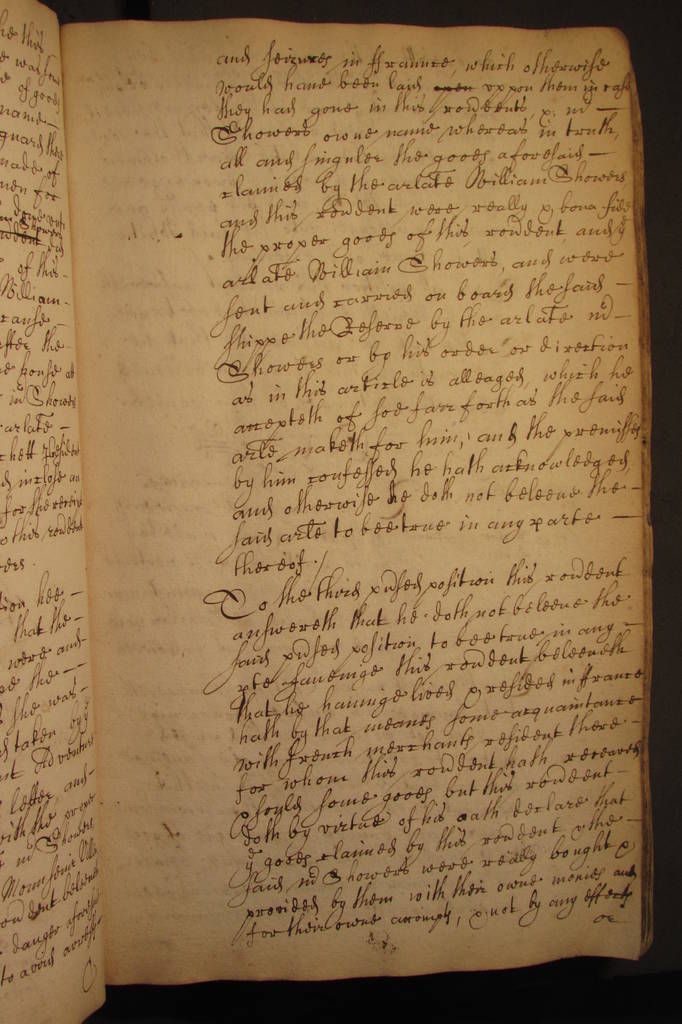 he this
e was
e of goods
name
made of
men for
of this
William
cause
after the
e house at
in Showers
arlate
chett
d inclose an
for the
o this rendent
ers.
tion hee
that the
were and
ed the
she was
taken by
nt Adventure
letter, and
with the
Md Showers
Monnsieur
rendent beleeve
danger aforesaid
to avoid
and seizures in ffraunce, which otherwise
would have been laid upon uppon them in case
they had gone in this rendents & md
Showers owne name whereas in truth,
all and singuler the goods aforesaid
claimed by the arlate William Showers
and this rendent were really & bona fide
the proper goods of this rendent and ye
arlate William Showers, and were
sent and carried on board the said
shippe the Reserve by the arlate md
Showers or by his order or direction
as in this article is alleaged, which he
accepteth of soe farr forth as the said
arlte maketh for him, and the premisses
by him confessed he hath acknowledged,
and otherwise he doth not beleeve the
said arlte to bee true in any parte
thereof./
To the third position this rendent
answereth that he doth not beleeve the
said position to bee true in any
pte saveinge this rendent beleeveth
that he havinge lived & resided in ffrance
hath by that meanes some acquaintance
with french merchants resident there
for whom this rendent hath receaved
& sould some goods but this rendent
doth by virtue of his oath declare that
ye goods claimed by this rendent & the
said md Showers were really bought &
provided by them with their owne monies and
for their owne accompts, & not by any effects
or